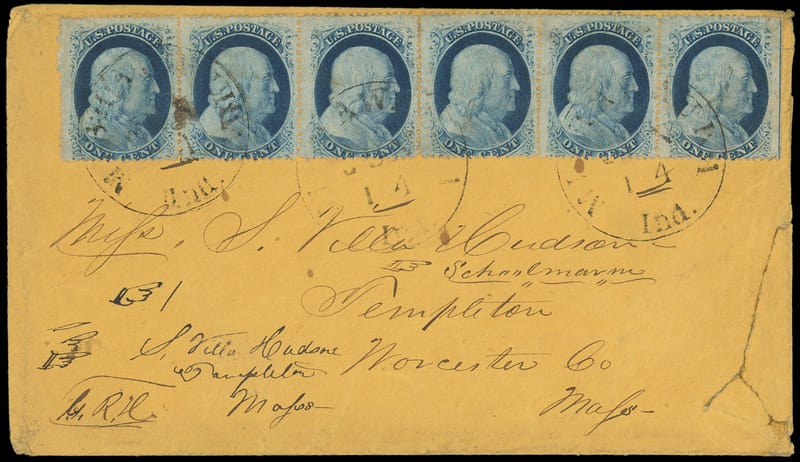 U.S. POSTAGE U.S. POSTAGE U.S. POSTAGE U.S. POSTAGE U.S. POSTAGE U.S. POSTAGE
ONE CENT ONE CENT ONE CENT ONE CENT ONE CENT ONE CENT
14 14
Ind. Ind. Ind.
Miss, S. Villa Hudson
"Schoolmarm"
Templeton
Worcester Co
Mass
1
S. Villa Hudson
Templeton
Mass
G. R. H.